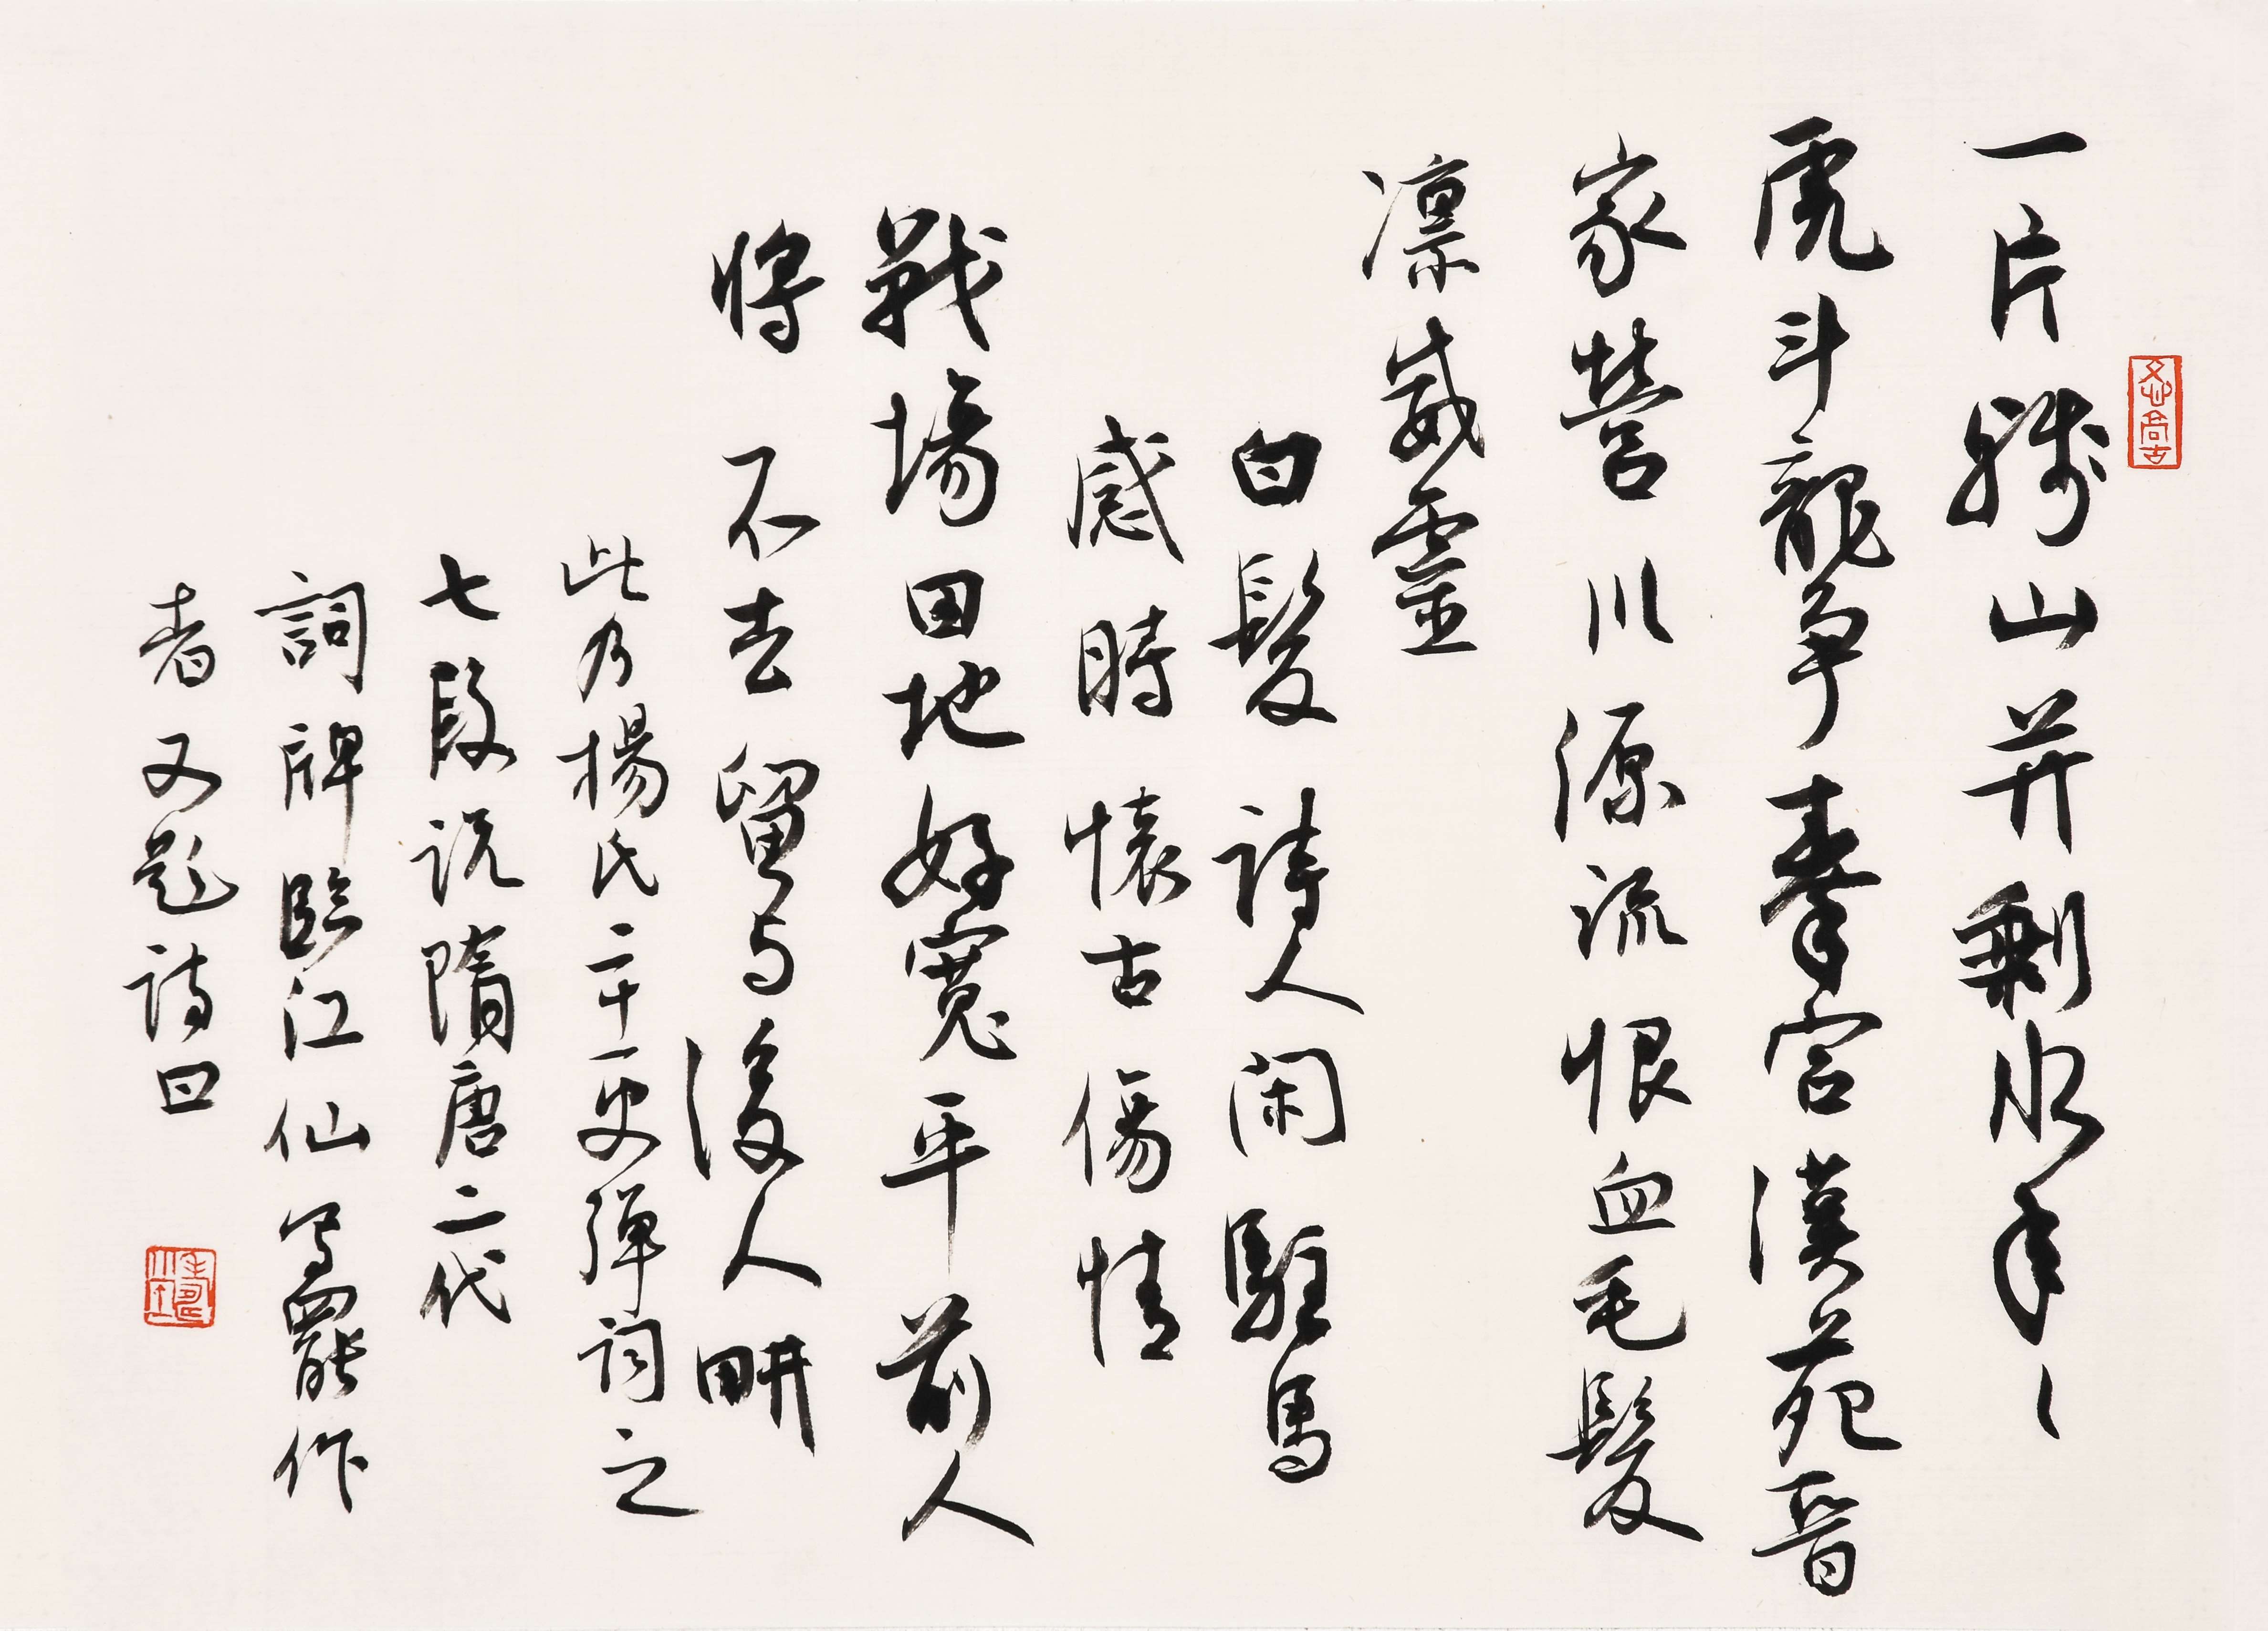 一片殘山并剩水年〻
虎斗龍争秦宮漢苑晋
家營川源流恨血毛髮
凛威靈
白髮詩人閑駐馬
感時懷古傷情
戰場田地好寬平前人
將不去留与後人畊
此乃楊氏二十一史弹词之
七段説隋唐二代
詞牌臨江仙写罷作
者又题詩曰